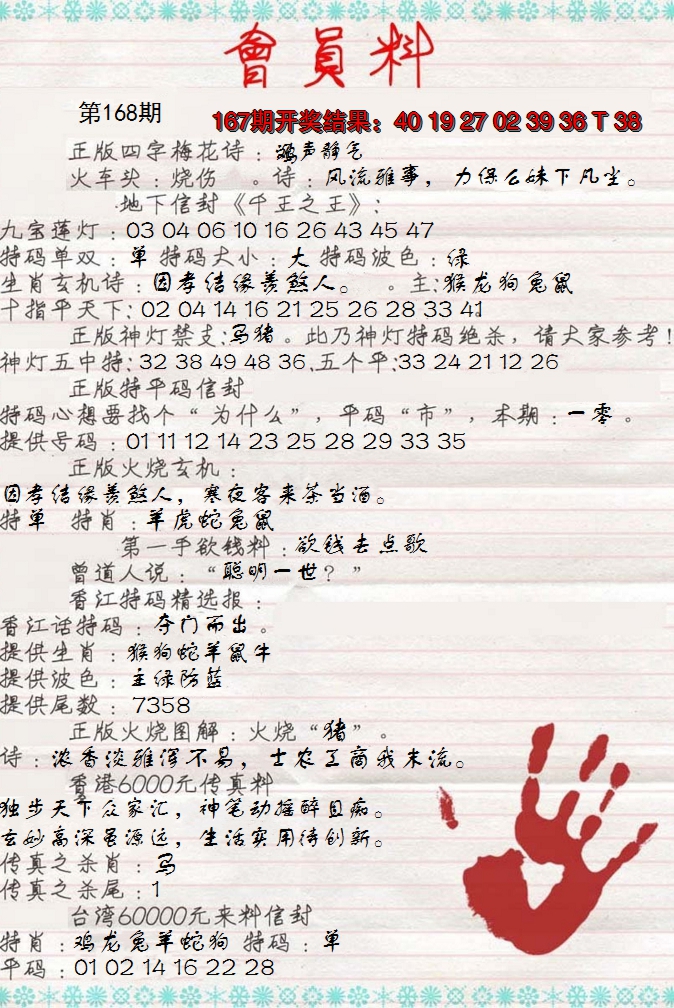 會員料
第168期
167期开奖结果：40 19 27 02 39 36 T 38
正版四字梅花诗：鸿声静气
火车头：烧伤 。诗：风流雅事，力保公妹下凡尘。
地下信封《千王之王》：
九宝莲灯：03 04 06 10 16 26 43 45 47
特码单双：单 特码大小：大 特码波色：绿
生肖玄机诗：因孝结缘羡煞人。 。主:猴龙狗兔鼠
十指平天下: 02 04 14 16 21 25 26 28 33 41
正版神灯禁支:马猪。此乃神灯特码绝杀，请大家参考!
神灯五中特:32 38 49 48 36.五个平:33 24 21 12 26
正版特平码信封
特码心想要找个“为什么”，平码“市”，本期：一零。
提供号码：01 11 12 14 23 25 28 29 33 35
正版火烧玄机：
因孝结缘羡煞人，寒夜客来茶当酒。
特单 特肖：羊虎蛇兔鼠
第一手欲钱料：欲钱去点歌
曾道人说：“聪明一世？”
香江特码精选报：
香江话特码：夺门而出。
提供生肖：猴狗蛇羊鼠牛
提供波色：主绿防蓝
提供尾数：7358
正版火烧图解：火烧“猪”。
诗：浓香淡雅浑不易，士农工商我末流。
香港6000元传真料
独步天下众家汇，神笔动摇醉且痴。
玄妙高深虽源远，生活实用待创新。
传真之杀肖：马
传真之杀尾：1
台湾60000元来料信封
特肖：鸡龙兔羊蛇狗 特码：单
平码：01 02 14 16 22 28